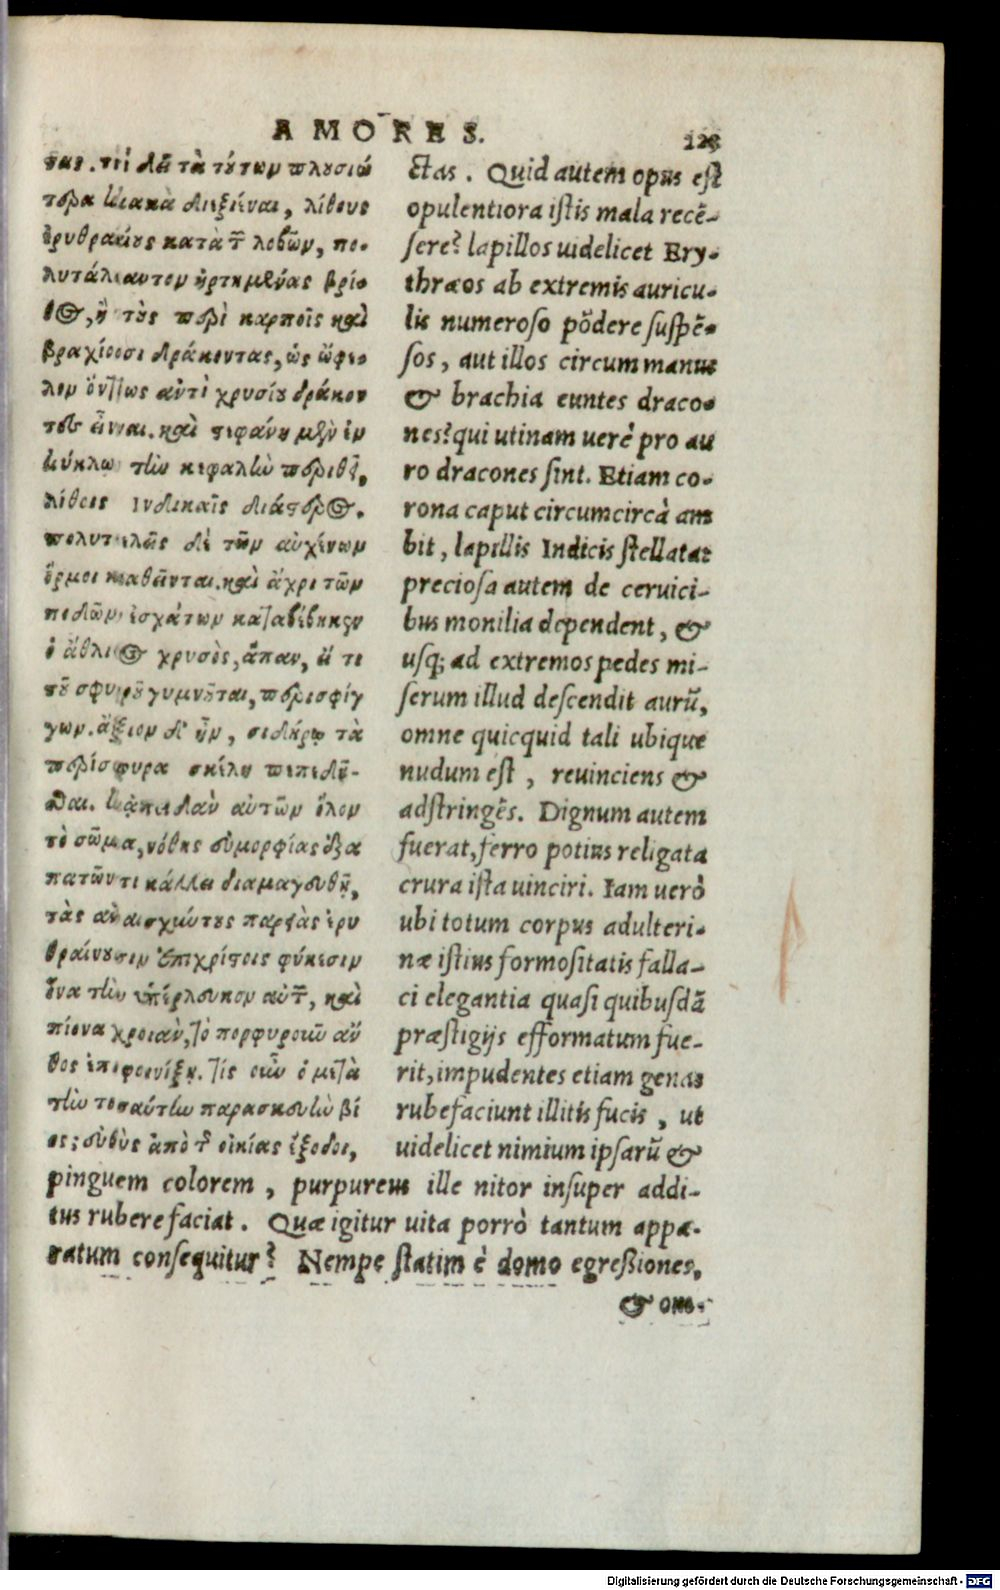 AMORES. 123
τας. τί δὲ τὰ τύτων πλουσιώ
τερα κακὰ διεξιέναι, λίθους
ἐρυθραίους κατὰ τ̃ λοβῶν, πο-
λυτάλαντον ἠρτημένας βρί-
θος, ἢ τοὺς περὶ καρποῖς καὶ
βραχίοσι δράκοντας, ὡς ὤφε-
λον ὄντως ἀντὶ χρυσίου δράκον
τες εἶναι. καὶ στεφάνη μὲν ἐν
κύκλῳ τὴν κεφαλὴν περιθεῖ,
λίθοις Ινδικαῖς διάστερος.
πολυτελεῖς δὲ τῶν αὐχένων
ὅρμοι καθεῖνται. καὶ ἄχρι τῶν
ποδῶν ἐσχάτων καταβέβηκεν
ὁ ἄθλιος χρυσὸς, ἅπαν, εἴ τι
τοῦ σφυροῦ γυμνοῦται, περισφίγ
γων. ἄξιον δ' ἦν, σιδήρῳ τὰ
περίσφυρα σκέλη πεπεδῆ-
σθαι. κἀπειδὰν αὐτῶν ὅλον
τὸ σῶμα, νόθης εὐμορφίας ἐξα
πατῶντι κάλλει διαμαγευθῇ,
τὰς ἀναισχύντους παρειὰς ἐρυ
θραίνουσιν ἐπιχρίστοις φύκεσιν
ἵνα τὴν ὑπέρλευκον αὐτ̃, καὶ
πίονα χροιὰν, τὸ πορφυροῦν ἄν
θος ἐπιφοινίξῃ. τίς οὖν ὁ μετὰ
τὴν τοσαύτην παρασκευὴν βί
ος; εὐθὺς ἀπὸ τ̃ οἰκίας ἔξοδοι,
ctas. Quid autem opus est
opulentiora istis mala recē-
sere? lapillos uidelicet Ery-
thræos ab extremis auricu-
lis numeroso pōdere suspē-
sos, aut illos circum manus
& brachia euntes draco-
nes? qui utinam uerè pro au
ro dracones sint. Etiam co-
rona caput circumcircà am
bit, lapillis Indicis stellata:
preciosa autem de ceruici-
bus monilia dependent, &
usq; ad extremos pedes mi-
serum illud descendit aurū,
omne quicquid tali ubique
nudum est, reuinciens &
adstringēs. Dignum autem
fuerat, ferro potius religata
crura ista uinciri. Iam uerò
ubi totum corpus adulteri-
næ istius formositatis falla-
ci elegantia quasi quibusdā
præstigijs efformatum fue-
rit, impudentes etiam genas
rubefaciunt illitis fucis, ut
uidelicet nimium ipsarū &
pinguem colorem, purpureus ille nitor insuper addi-
tus rubere faciat. Quæ igitur uita porrò tantum appa-
ratum consequitur? Nempe statim è domo egressiones,
& om-
Digitalisierung gefördert durch die Deutsche Forschungsgemeinschaft - DFG